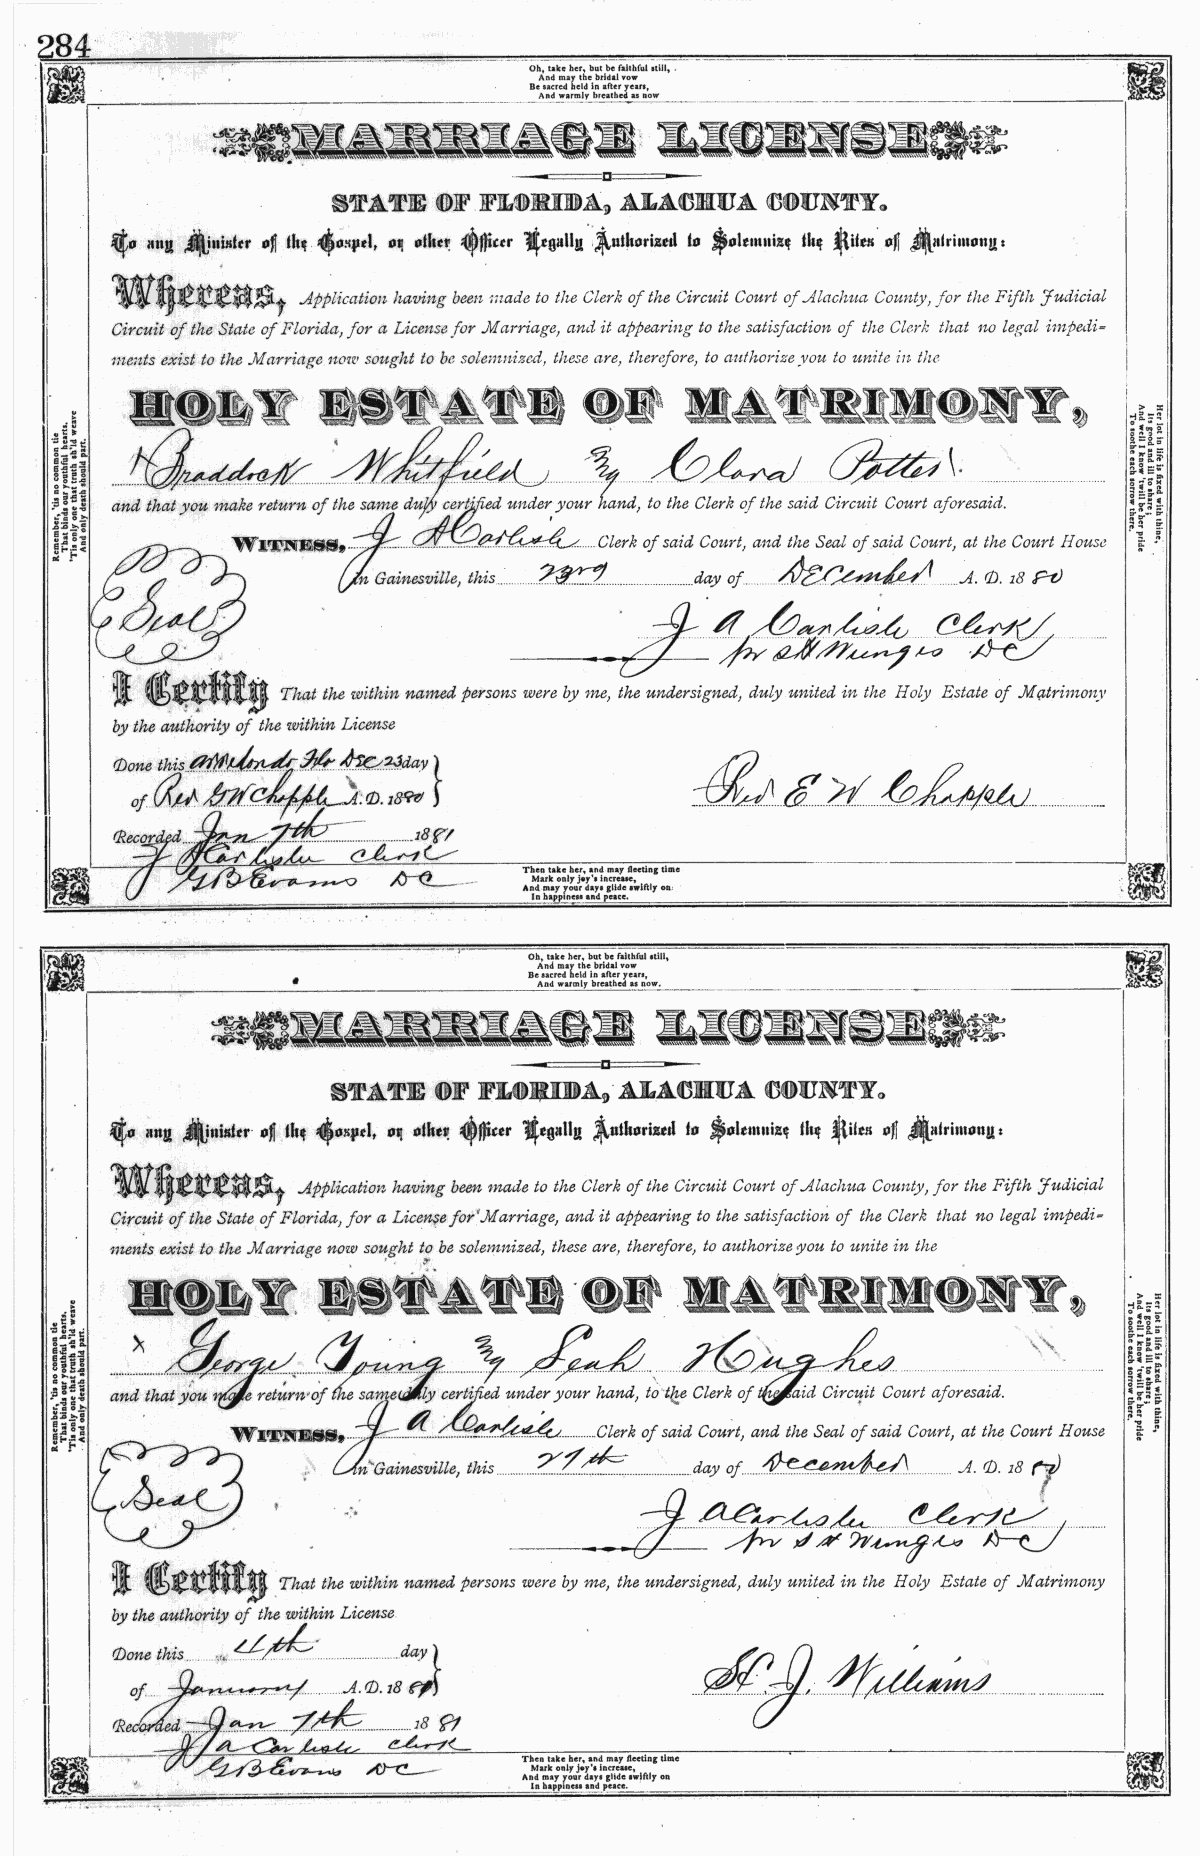 284
Oh, take her, but be faithful still,
And may the bridal vow
Be sacred held in after years,
And warmly breathed as now
MARRIAGE LICENSE
STATE OF FLORIDA, ALACHUA COUNTY.
To any Minister of the Gospel, or other Officer Legally Authorized to Solemnize the Rites of Matrimony:
Whereas, Application having been made to the Clerk of the Circuit Court of Alachua County, for the Fifth Judicial
Circuit of the State of Florida, for a License for Marriage, and it appearing to the satisfaction of the Clerk that no legal impedi-
ments exist to the Marriage now sought to be solemnized, these are, therefore, to authorize you to unite in the
HOLY ESTATE OF MATRIMONY,
Braddock Whitfield Clara Potter
and that you make return of the same duly certified under your hand, to the Clerk of the said Circuit Court aforesaid.
WITNESS, J A Carlisle Clerk of said Court, and the Seal of said Court, at the Court House
in Gainesville, this 23rd day of December A. D. 1880
Seal
J A Carlisle Clerk
pr S H Wienges DC
I Certify That the within named persons were by me, the undersigned, duly united in the Holy Estate of Matrimony
by the authority of the within License
Done this Arredondo Flo Dec 23 day
of Rev G W Chapple A. D. 1880
Rev E W Chapple
Recorded Jan 7th 1881
J A Carlisle Clerk
G B Evans DC
Then take her, and may fleeting time
Mark only joy's increase,
And may your days glide swiftly on
In happiness and peace.
Remember, 'tis no common tie
That binds our youthful hearts,
'Tis only one that truth sh'ld weave
And only death should part.
Her lot in life is fixed with thine,
Its good and ill to share;
And well I know 'twill be her pride
To soothe each sorrow there.
Oh, take her, but be faithful still,
And may the bridal vow
Be sacred held in after years,
And warmly breathed as now.
MARRIAGE LICENSE
STATE OF FLORIDA, ALACHUA COUNTY.
To any Minister of the Gospel, or other Officer Legally Authorized to Solemnize the Rites of Matrimony:
Whereas, Application having been made to the Clerk of the Circuit Court of Alachua County, for the Fifth Judicial
Circuit of the State of Florida, for a License for Marriage, and it appearing to the satisfaction of the Clerk that no legal impedi-
ments exist to the Marriage now sought to be solemnized, these are, therefore, to authorize you to unite in the
HOLY ESTATE OF MATRIMONY,
x George Young Leah Hughes
and that you make return of the same duly certified under your hand, to the Clerk of the said Circuit Court aforesaid.
WITNESS, J A Carlisle Clerk of said Court, and the Seal of said Court, at the Court House
in Gainesville, this 27th day of December A. D. 1880
Seal
J A Carlisle Clerk
pr S H Wienges DC
I Certify That the within named persons were by me, the undersigned, duly united in the Holy Estate of Matrimony
by the authority of the within License
Done this 4th day
of January A. D. 1881
H. J. Williams
Recorded Jan 7th 1881
J A Carlisle Clerk
G B Evans DC
Then take her, and may fleeting time
Mark only joy's increase,
And may your days glide swiftly on
In happiness and peace.
Remember, 'tis no common tie
That binds our youthful hearts.
'Tis only one that truth sh'ld weave
And only death should part.
Her lot in life is fixed with thine,
Its good and ill to share;
And well I know 'twill be her pride
To soothe each sorrow there.